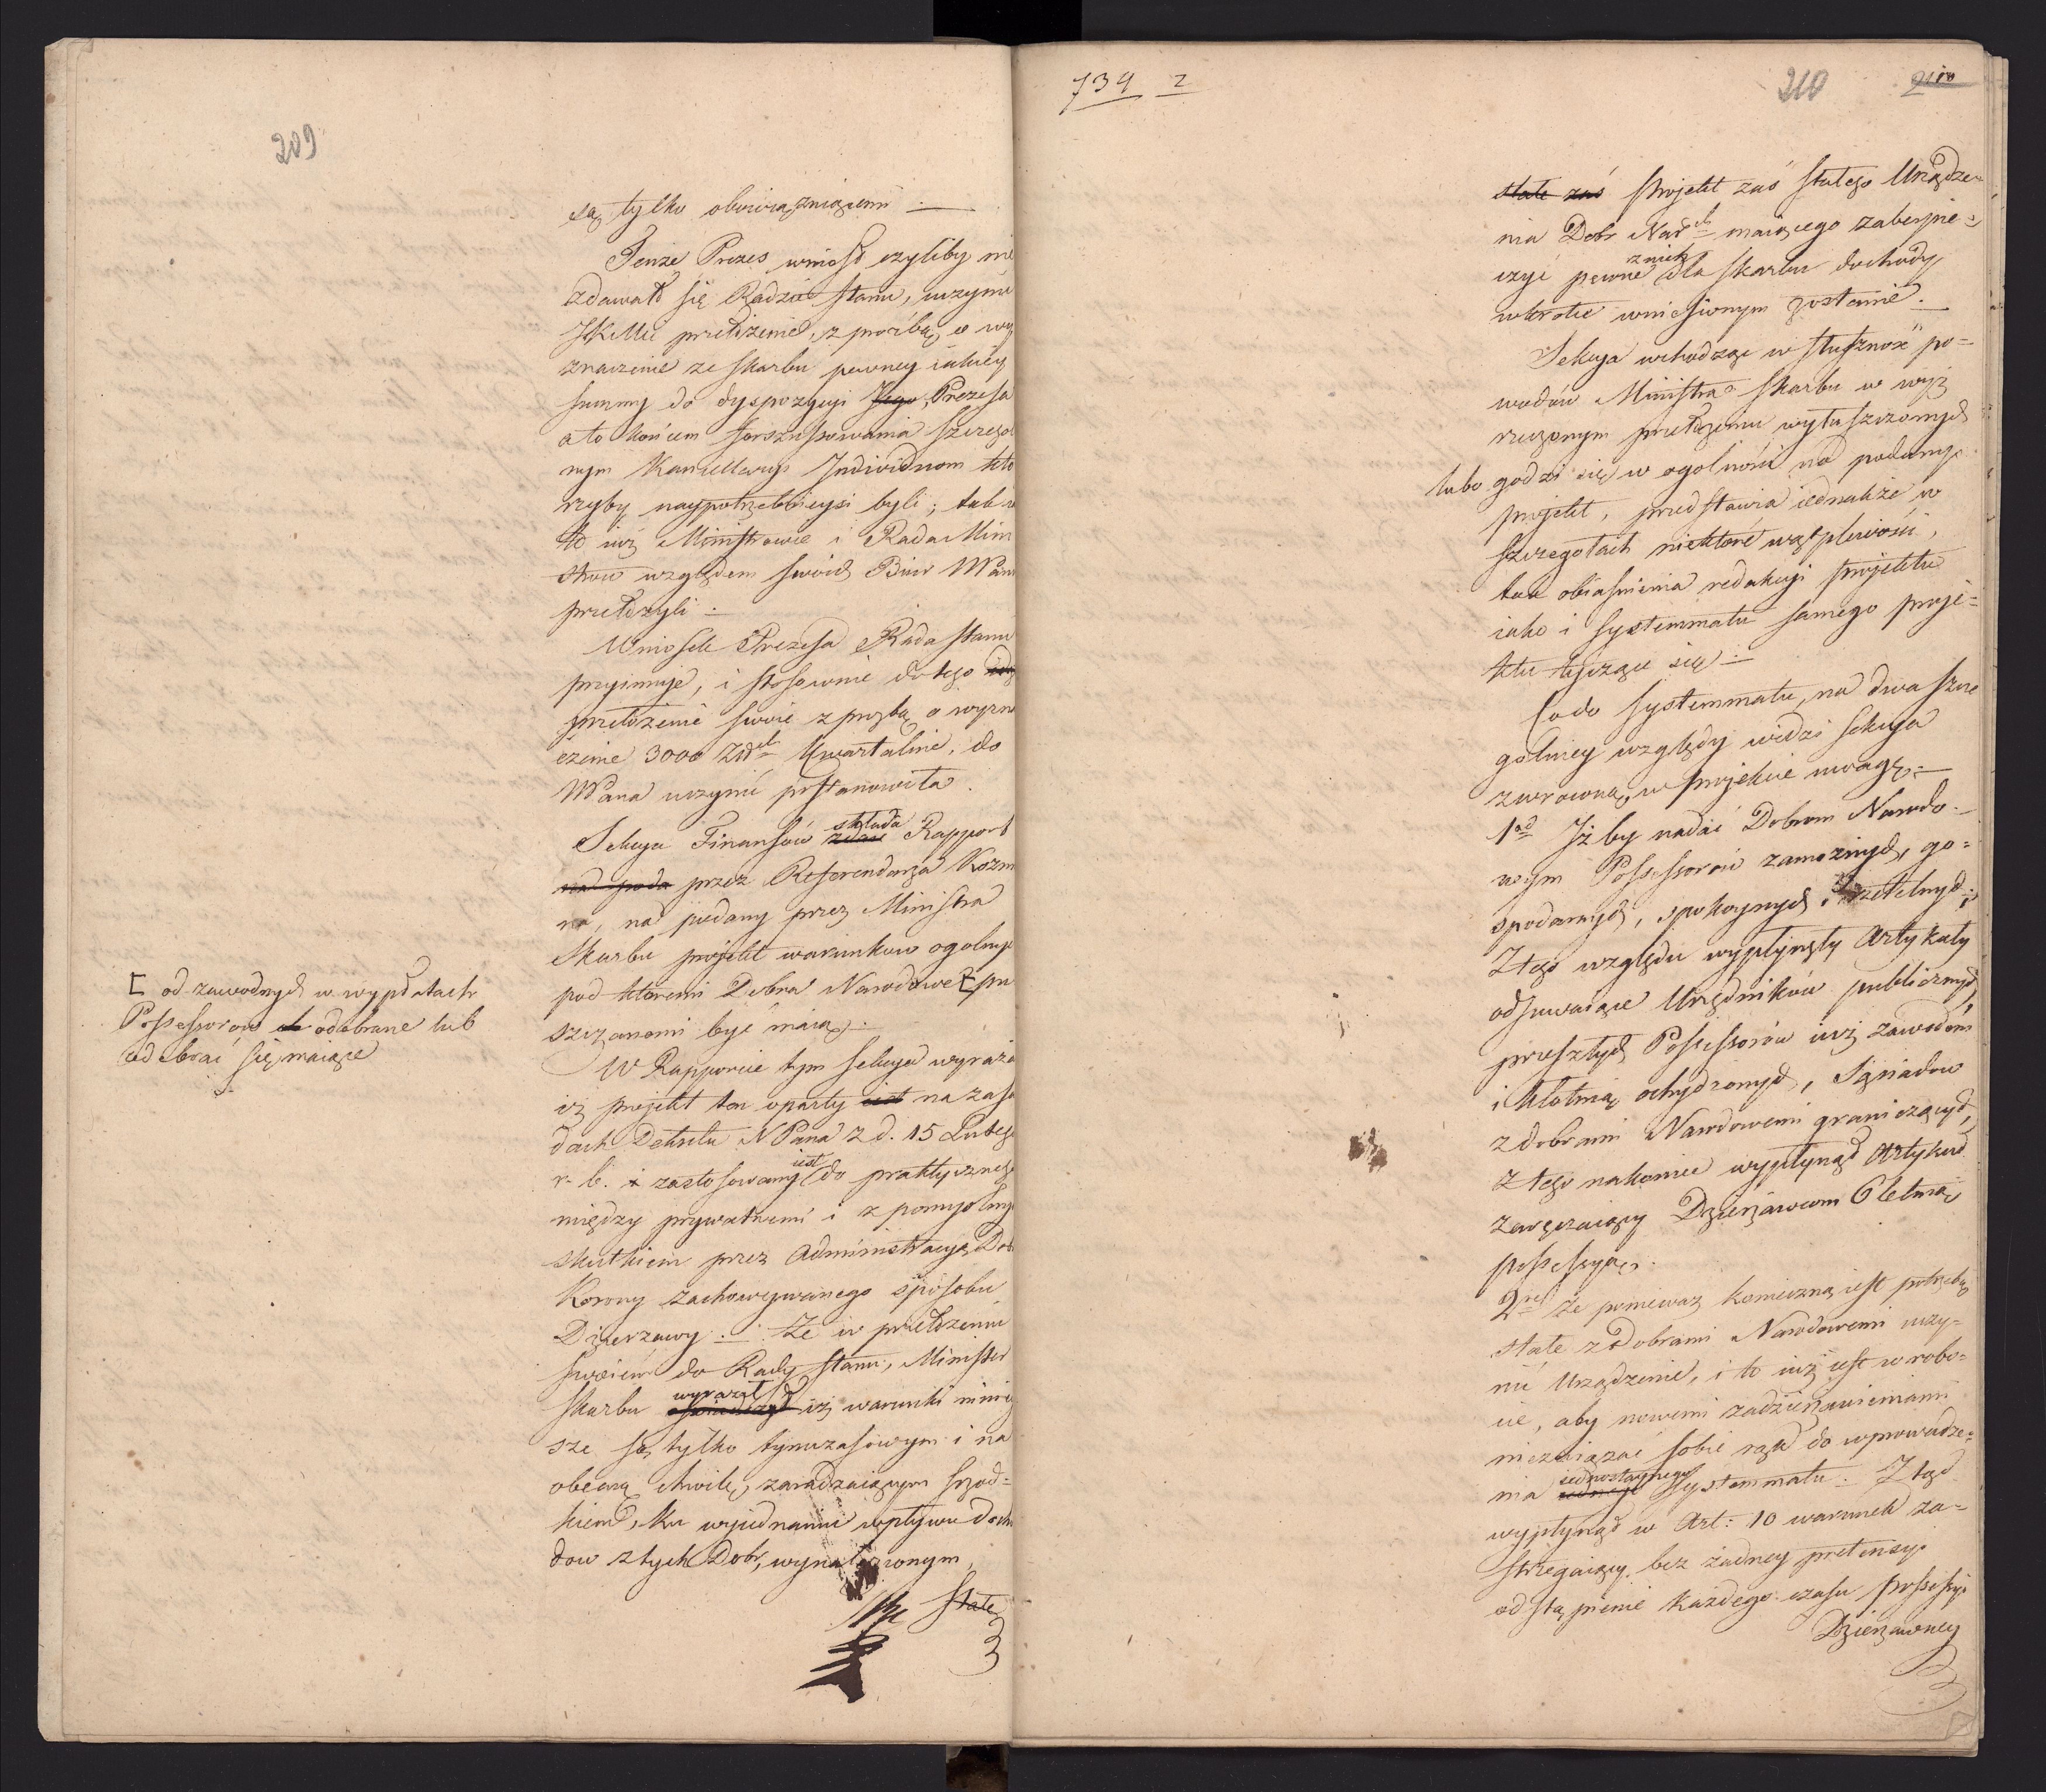 209
są tylko obowiązuiącemi
Tenże Prezes wniosł czyliby nie
zdawało się Radzie Stanu, uczynić
JKMci przełożenie, z prożbą, o wy
znaczenie ze skarbu pewney iakiey
summy do dyspozycyi Jego, Prezesa
a to końcem forszusowania szczegol
nym Kancellaryi Individuom kto
rzyby naypotrzebnieysi byli; tak
to iuż Ministrowie i Rada Mini
strow względem swoich Biur NPanu
przełożyli
Wniosek Prezesa Rada Stanu
przyimuje, i stosownie do tego
przełożenie swoie z proźbą o wyzna
czenie 3000 Zł Kwartalnie, do
NPana uczynić postanowiła.
Sekcya Finansów składa Rapport
przez Referendarza Kozm
na, na podany przez Ministra
Skarbu projekt warunkow ogolnych
pod ktoremi Dobra Narodowe [ pu
szczonemi być maią.
[ od zawodnych w wypłatach
Possessorow odebrane lub
odebrać się maiące
W Rapporcie tym Sekcya wyraża
iż projekt ten oparty iest na zasa
dach Dekretu NPana z d. 15 Lutego
r. b. i zastosowany iest do praktycznego
między prywatnemi i z pomyślnym
skutkiem przez Administracyą Dobr
Korony zachowywanego sposobu
Dzierzawy. Że w przełożeniu
swoiem do Rady Stanu, Minister
Skarbu oświadczył wyraził iż warunki niniey
sze są tylko tymczasowym i na
obecną chwilę, zaradzaiącym szrod-
kiem, ku wyiednaniu wpływu docho
dow z tych Dobr, wynalezionym,
Stałe
739 2
210
stałe zaś Projekt zaś stałego Urządze-
nia Dobr Nar maiącego zabespie-
czyć pewne z nich dla skarbu dochody,
wkrotce wniesionym zostanie.
Sekcya wchodząc w słuszność po-
wodów Ministra Skarbu w wyż
rzeczonym przełożeniu wyłuszczonych
lubo godzi się w ogolności na podany
projekt, przedstawia iednakże w
szczegołach niektóre wątpliwości,
tak obiaśnienia redakcyi projektu
iako i systemmatu samego proje-
ktu tyczące się
Co do systemmatu, na dwa szcze
golniey względy widzi Sekcya
zwroconą, w projekcie uwagę.
1od Iż by nadać Dobrom Narodo-
wym Possessorów zamożnych, go-
spodarnych, spokoynych i rzetelnych;
Z tego względu wypłynęły Artykuły
odsuwaiące Urzędników publicznych,
przeszłych Possessorów iuż zawodem
i kłotnią ochydzonych, Sąsiadow
z dobrami Narodowemi graniczących,
z tego nakoniec wypłynął Artykuł
zaręczaiący Dzierżawcom 6letnią
possessyą.
2re Że ponieważ konieczną iest potrzebą
stałe z dobrami Narodowemi uczy-
nić Urządzenie, i to iuż iest w robo-
cie, aby nowemi zadzierżawieniami
niezwiązać sobie rąk do wprowadze-
nia iednego iednostaynego systemmatu. Ztąd
wypłynął w Art: 10 warunek za-
strzegaiący, bez żadney pretensyi
odstąpienie każdego czasu possessyi
Dzierżawney